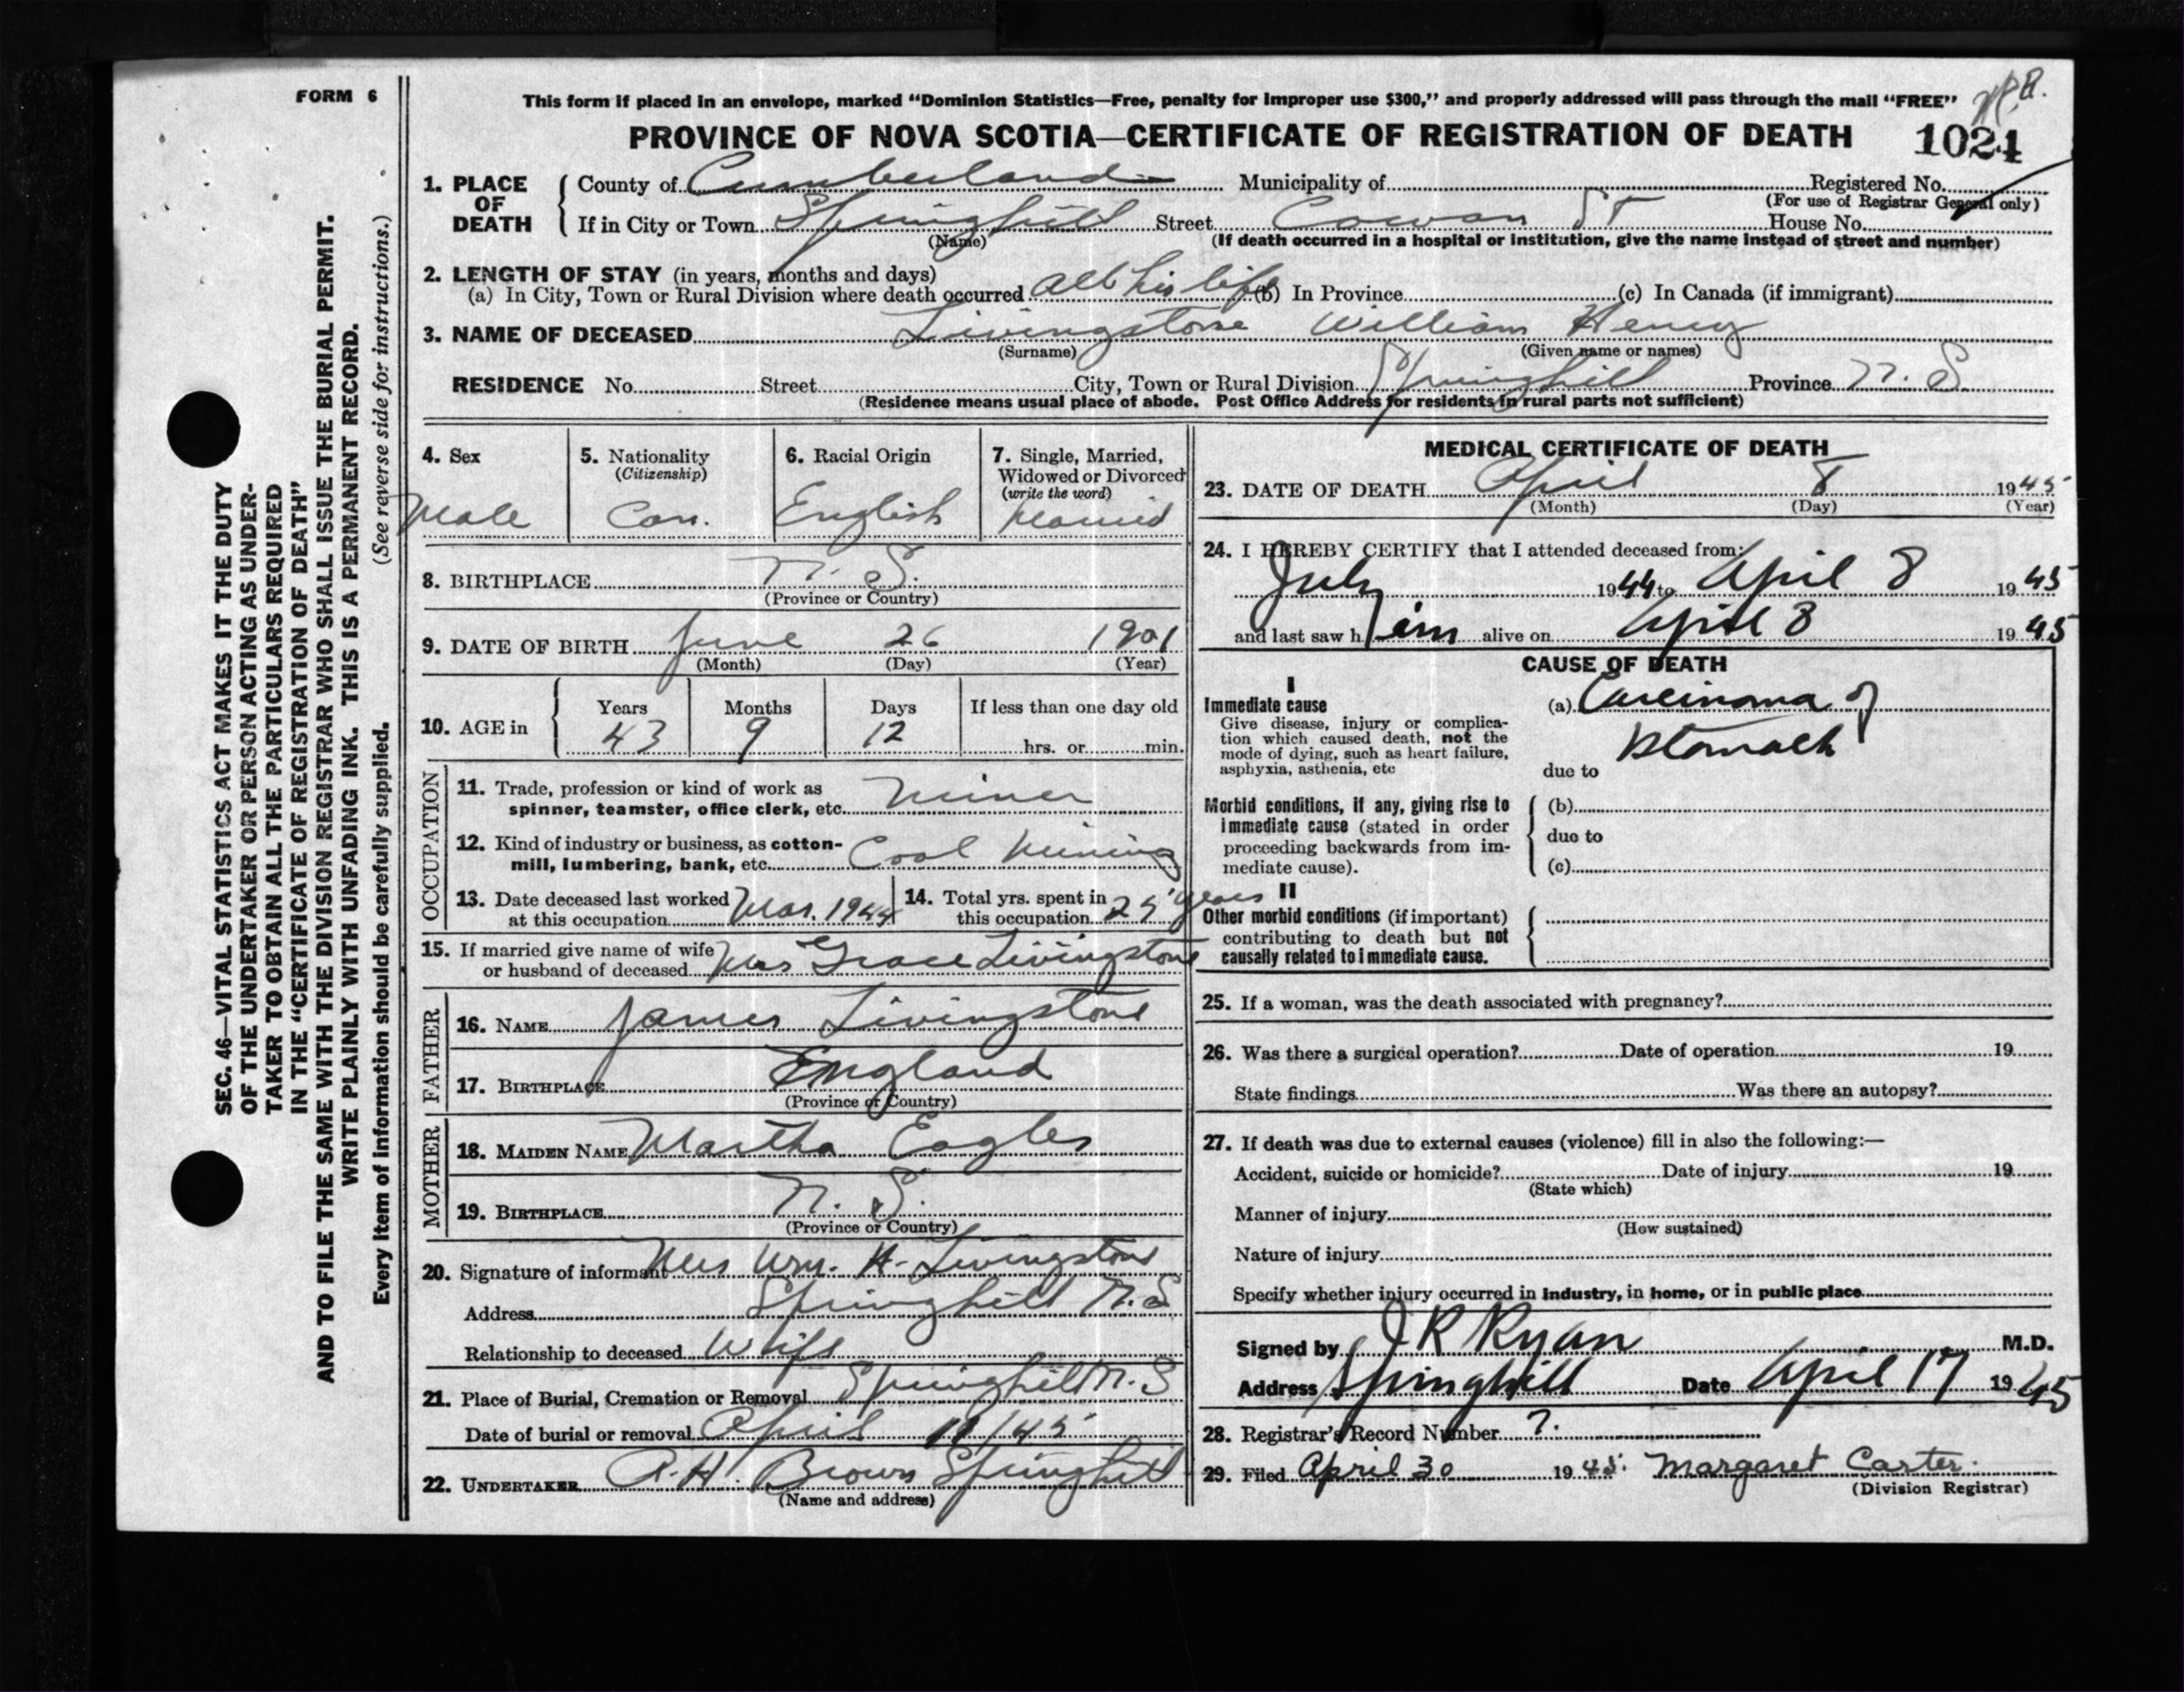 FORM 6
This form if placed in an envelope, marked “Dominion Statistics—Free, penalty for improper use $300,” and properly addressed will pass through the mail “FREE”
PROVINCE OF NOVA SCOTIA—CERTIFICATE OF REGISTRATION OF DEATH 1021
1. PLACE OF DEATH { County of Cumberland Municipality of Registered No.
(For use of Registrar General only)
If in City or Town Springhill Street Cowan St House No.
(Name) (If death occurred in a hospital or institution, give the name instead of street and number)
2. LENGTH OF STAY (in years, months and days)
(a) In City, Town or Rural Division where death occurred all his life (b) In Province (c) In Canada (if immigrant)
3. NAME OF DECEASED Livingstone William Henry
(Surname) (Given name or names)
RESIDENCE No. Street City, Town or Rural Division Springhill Province N. S.
(Residence means usual place of abode. Post Office Address for residents in rural parts not sufficient)
4. Sex
Male
5. Nationality
(Citizenship)
Can.
6. Racial Origin
English
7. Single, Married,
Widowed or Divorced
(write the word)
Married
8. BIRTHPLACE N. S.
(Province or Country)
9. DATE OF BIRTH June 26 1901
(Month) (Day) (Year)
10. AGE in { Years Months Days If less than one day old
43 9 12 hrs. or min.
OCCUPATION
11. Trade, profession or kind of work as
spinner, teamster, office clerk, etc. Miner
12. Kind of industry or business, as cotton-
mill, lumbering, bank, etc. Coal Mining
13. Date deceased last worked
at this occupation Mar. 1944
14. Total yrs. spent in
this occupation 25 years
15. If married give name of wife
or husband of deceased Mrs Grace Livingstone
FATHER
16. NAME James Livingstone
17. BIRTHPLACE England
(Province or Country)
MOTHER
18. MAIDEN NAME Martha Eagles
19. BIRTHPLACE N. S.
(Province or Country)
20. Signature of informant Mrs Wm. H. Livingstone
Address Springhill N.S
Relationship to deceased Wife
21. Place of Burial, Cremation or Removal Springhill N. S
Date of burial or removal April 11/45
22. UNDERTAKER A. H. Brown Springhill
(Name and address)
MEDICAL CERTIFICATE OF DEATH
23. DATE OF DEATH April 8 1945
(Month) (Day) (Year)
24. I HEREBY CERTIFY that I attended deceased from:
July 1944 to April 8 1945
and last saw him alive on April 8 1945
CAUSE OF DEATH
I
Immediate cause
Give disease, injury or complica-
tion which caused death, not the
mode of dying, such as heart failure,
asphyxia, asthenia, etc
(a) Carcinoma of
Stomach
due to
Morbid conditions, if any, giving rise to
immediate cause (stated in order
proceeding backwards from im-
mediate cause).
(b)
due to
(c)
II
Other morbid conditions (if important)
contributing to death but not
causally related to immediate cause.
25. If a woman, was the death associated with pregnancy?
26. Was there a surgical operation? Date of operation 19
State findings Was there an autopsy?
27. If death was due to external causes (violence) fill in also the following:—
Accident, suicide or homicide? Date of injury 19
(State which)
Manner of injury
(How sustained)
Nature of injury
Specify whether injury occurred in industry, in home, or in public place
Signed by J R Ryan M.D.
Address Springhill Date April 17 1945
28. Registrar's Record Number 7.
29. Filed April 30 1945. Margaret Carter.
(Division Registrar)
SEC. 46—VITAL STATISTICS ACT MAKES IT THE DUTY
OF THE UNDERTAKER OR PERSON ACTING AS UNDER-
TAKER TO OBTAIN ALL THE PARTICULARS REQUIRED
IN THE “CERTIFICATE OF REGISTRATION OF DEATH”
AND TO FILE THE SAME WITH THE DIVISION REGISTRAR WHO SHALL ISSUE THE BURIAL PERMIT.
WRITE PLAINLY WITH UNFADING INK. THIS IS A PERMANENT RECORD.
Every item of information should be carefully supplied. (See reverse side for instructions.)